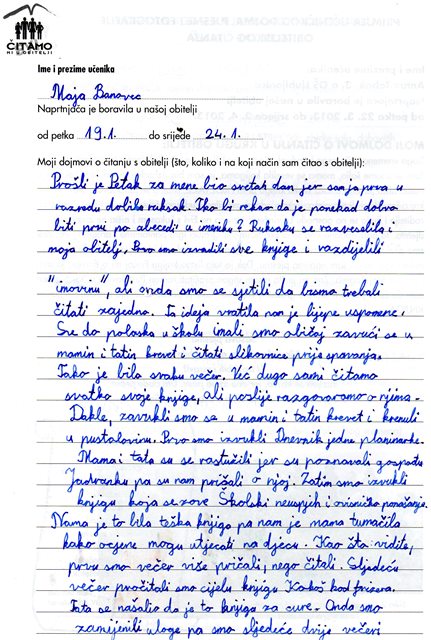 ČITAMO
MI U OBITELJI
Ime i prezime učenika
Maja Banovec
Naprtnjača je boravila u našoj obitelji
od petka 19.1. do srijede 24.1.
Moji dojmovi o čitanju s obitelji (što, koliko i na koji način sam čitao s obitelji):
Prošli je Petak za mene bio svetak dan jer sam ja prva u
razredu dobila ruksak. Tko bi rekao da je ponekad dobro
biti prvi po abecedi u imeniku? Ruksaku se razveselila i
moja obitelj. Prvo smo izvadili sve knjige i razdijelili
"imovinu", ali onda smo se sjetili da bismo trebali
čitati zajedno. Ta ideja vratila nam je lijepe uspomene.
Sve do polaska u školu imali smo običaj zavući se u
mamin i tatin krevet i čitati slikovnice prije spavanja.
Tako je bilo svaku večer. Već dugo sami čitamo
svatko svoje knjige, ali poslije razgovaramo o njima.
Dakle, zavukli smo se u mamin i tatin krevet i krenuli
u pustolovinu. Prvo smo izvukli Dnevnik jedne planinarke.
Mama i tata su se rastužili jer su poznavali gospođu
Jadranku pa su nam pričali o njoj. Zatim smo izvukli
knjigu koja se zove Školski neuspjeh i ovisničko ponašanje.
Nama je to bila teška knjiga pa nam je mama tumačila
kako ocjene mogu utjecati na djecu. Kao šta vidite,
prvu smo večer više pričali, nego čitali. Sljedeću
večer pročitali smo cijelu knjigu Kokoš kod frizera.
Tata se našalio da je to knjiga za cure. Onda smo
zamijenili uloge pa smo sljedeće dvije večeri